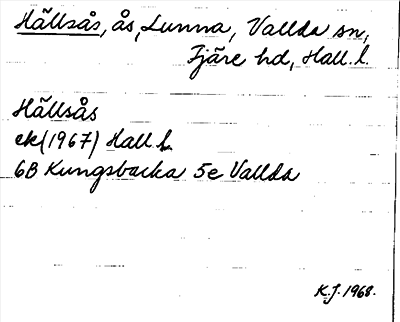 Hällsås, ås, Lunna, Vallda sn,
Fjäre hd, Hall. l.
Hällsås
ek (1967) Hall. l.
6B Kungsbacka 5e Vallda
K.J. 1968.